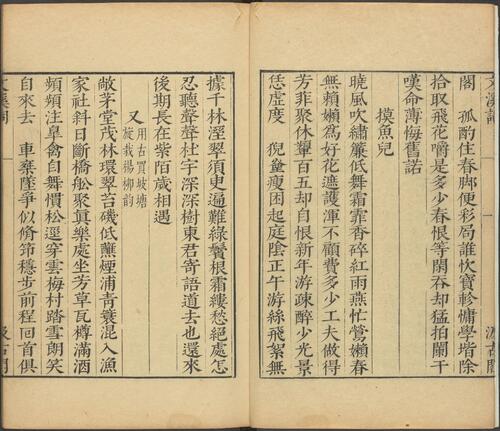 文溪詞
汲古閣
閣　孤酌住春脚便彩局誰忺寶軫慵學堦除
拾取飛花嚼是多少春恨等閒吞却猛拍闌干
嘆命薄悔舊諾
摸魚兒
曉風吹繡簾低舞霏霏香碎紅雨燕忙鶯嬾春
無賴嬾爲好花遮護渾不顧費多少工夫做得
芳菲聚休顰百五却自恨新年游疎醉少光景
恁虛度　猊瘦困起庭陰正午游絲飛絮無
據千林溼翠須臾遍難綠鬢根霜縷愁絕處怎
忍聽聲聲杜宇深深樹東君寄語道去也還來
後期長在紫陌歲相遇
又 用古買坡塘
旋栽楊柳韻
敞茅堂茂林環翠苔磯低蘸煙浦青蓑混入漁
家社斜日斷橋船聚眞樂處坐芳草瓦樽滿酒
頻頻注皐禽自舞慣松逕穿雲梅村踏雪朗笑
自來去　車乘墜爭似脩筇穩步前程回首俱
文溪詞
汲古閣